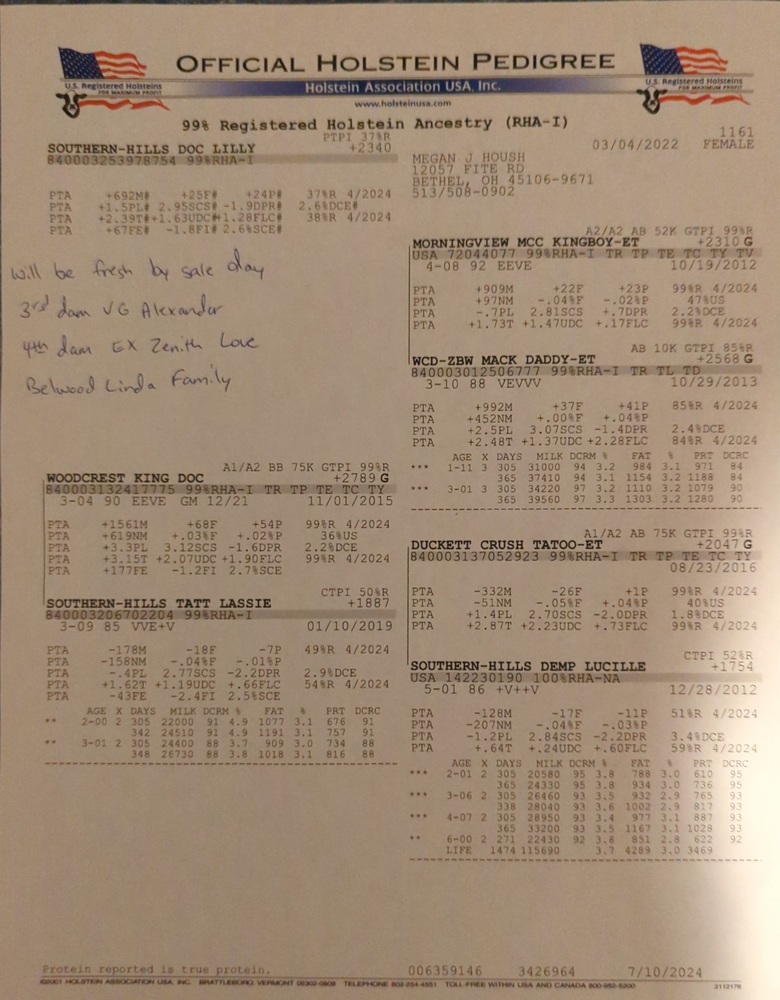 OFFICIAL HOLSTEIN PEDIGREE
U.S. Registered Holsteins
FOR MAXIMUM PROFIT
Holstein Association USA, Inc.
U.S. Registered Holsteins
FOR MAXIMUM PROFIT
www.holsteinusa.com
99% Registered Holstein Ancestry (RHA-I)
PTPI 37%R
SOUTHERN-HILLS DOC LILLY +2340
840003253978754 99%RHA-I
1161
03/04/2022 FEMALE
MEGAN J HOUSH
12057 FITE RD
BETHEL, OH 45106-9671
513/508-0902
PTA +692M# +25F# +24P# 37%R 4/2024
PTA +1.5PL# 2.95SCS# -1.9DPR# 2.6%DCE#
PTA +2.39T#+1.63UDC#+1.28FLC# 38%R 4/2024
PTA +67FE# -1.8FI# 2.6%SCE#
Will be fresh by sale day
3rd dam VG Alexander
4th dam EX Zenith Love
Belwood Linda Family
A2/A2 AB 52K GTPI 99%R
MORNINGVIEW MCC KINGBOY-ET +2310 G
USA 72044077 99%RHA-I TR TP TE TC TY TV
4-08 92 EEVE 10/19/2012
PTA +909M +22F +23P 99%R 4/2024
PTA +97NM -.04%F -.02%P 47%US
PTA -.7PL 2.81SCS +.7DPR 2.2%DCE
PTA +1.73T +1.47UDC +.17FLC 99%R 4/2024
AB 10K GTPI 85%R
WCD-ZBW MACK DADDY-ET +2568 G
840003012506777 99%RHA-I TR TL TD
3-10 88 VEVVV 10/29/2013
PTA +992M +37F +41P 85%R 4/2024
PTA +452NM +.00%F +.04%P
PTA +2.5PL 3.07SCS -1.4DPR 2.4%DCE
PTA +2.48T +1.37UDC +2.28FLC 84%R 4/2024
AGE X DAYS MILK DCRM % FAT % PRT DCRC
*** 1-11 3 305 31000 94 3.2 984 3.1 971 84
365 37410 94 3.1 1154 3.2 1188 84
*** 3-01 3 305 34220 97 3.2 1110 3.2 1079 90
365 39560 97 3.3 1303 3.2 1280 90
A1/A2 BB 75K GTPI 99%R
WOODCREST KING DOC +2789 G
840003132417775 99%RHA-I TR TP TE TC TY
3-04 90 EEVE GM 12/21 11/01/2015
PTA +1561M +68F +54P 99%R 4/2024
PTA +619NM +.03%F +.02%P 36%US
PTA +3.3PL 3.12SCS -1.6DPR 2.2%DCE
PTA +3.15T +2.07UDC +1.90FLC 99%R 4/2024
PTA +177FE -1.2FI 2.7%SCE
CTPI 50%R
SOUTHERN-HILLS TATT LASSIE +1887
840003206702204 99%RHA-I
3-09 85 VVE+V 01/10/2019
PTA -178M -18F -7P 49%R 4/2024
PTA -158NM -.04%F -.01%P
PTA -.4PL 2.77SCS -2.2DPR 2.9%DCE
PTA +1.62T +1.19UDC +.66FLC 54%R 4/2024
PTA -43FE -2.4FI 2.5%SCE
AGE X DAYS MILK DCRM % FAT % PRT DCRC
** 2-00 2 305 22000 91 4.9 1077 3.1 676 91
342 24510 91 4.9 1191 3.1 757 91
** 3-01 2 305 24400 88 3.7 909 3.0 734 88
348 26730 88 3.8 1018 3.1 816 88
A1/A2 AB 75K GTPI 99%R
DUCKETT CRUSH TATOO-ET +2047 G
840003137052923 99%RHA-I TR TP TE TC TY
08/23/2016
PTA -332M -26F +1P 99%R 4/2024
PTA -51NM -.05%F +.04%P 40%US
PTA +1.4PL 2.70SCS -2.0DPR 1.8%DCE
PTA +2.87T +2.23UDC +.73FLC 99%R 4/2024
CTPI 52%R
SOUTHERN-HILLS DEMP LUCILLE +1754
USA 142230190 100%RHA-NA
5-01 86 +V++V 12/28/2012
PTA -128M -17F -11P 51%R 4/2024
PTA -207NM -.04%F -.03%P
PTA -1.2PL 2.84SCS -2.2DPR 3.4%DCE
PTA +.64T +.24UDC +.60FLC 59%R 4/2024
AGE X DAYS MILK DCRM % FAT % PRT DCRC
*** 2-01 2 305 20580 95 3.8 788 3.0 610 95
365 24330 95 3.8 934 3.0 736 95
*** 3-06 2 305 26460 93 3.5 932 2.9 765 93
338 28040 93 3.6 1002 2.9 817 93
*** 4-07 2 305 28950 93 3.4 977 3.1 887 93
365 33200 93 3.5 1167 3.1 1028 93
** 6-00 2 271 22430 92 3.8 851 2.8 622 92
LIFE 1474 115690 3.7 4289 3.0 3469
Protein reported is true protein. 006359146 3426964 7/10/2024
©2001 HOLSTEIN ASSOCIATION USA, INC. BRATTLEBORO, VERMONT 05302-0808 TELEPHONE 802-254-4551 TOLL FREE WITHIN USA AND CANADA 800-952-5200